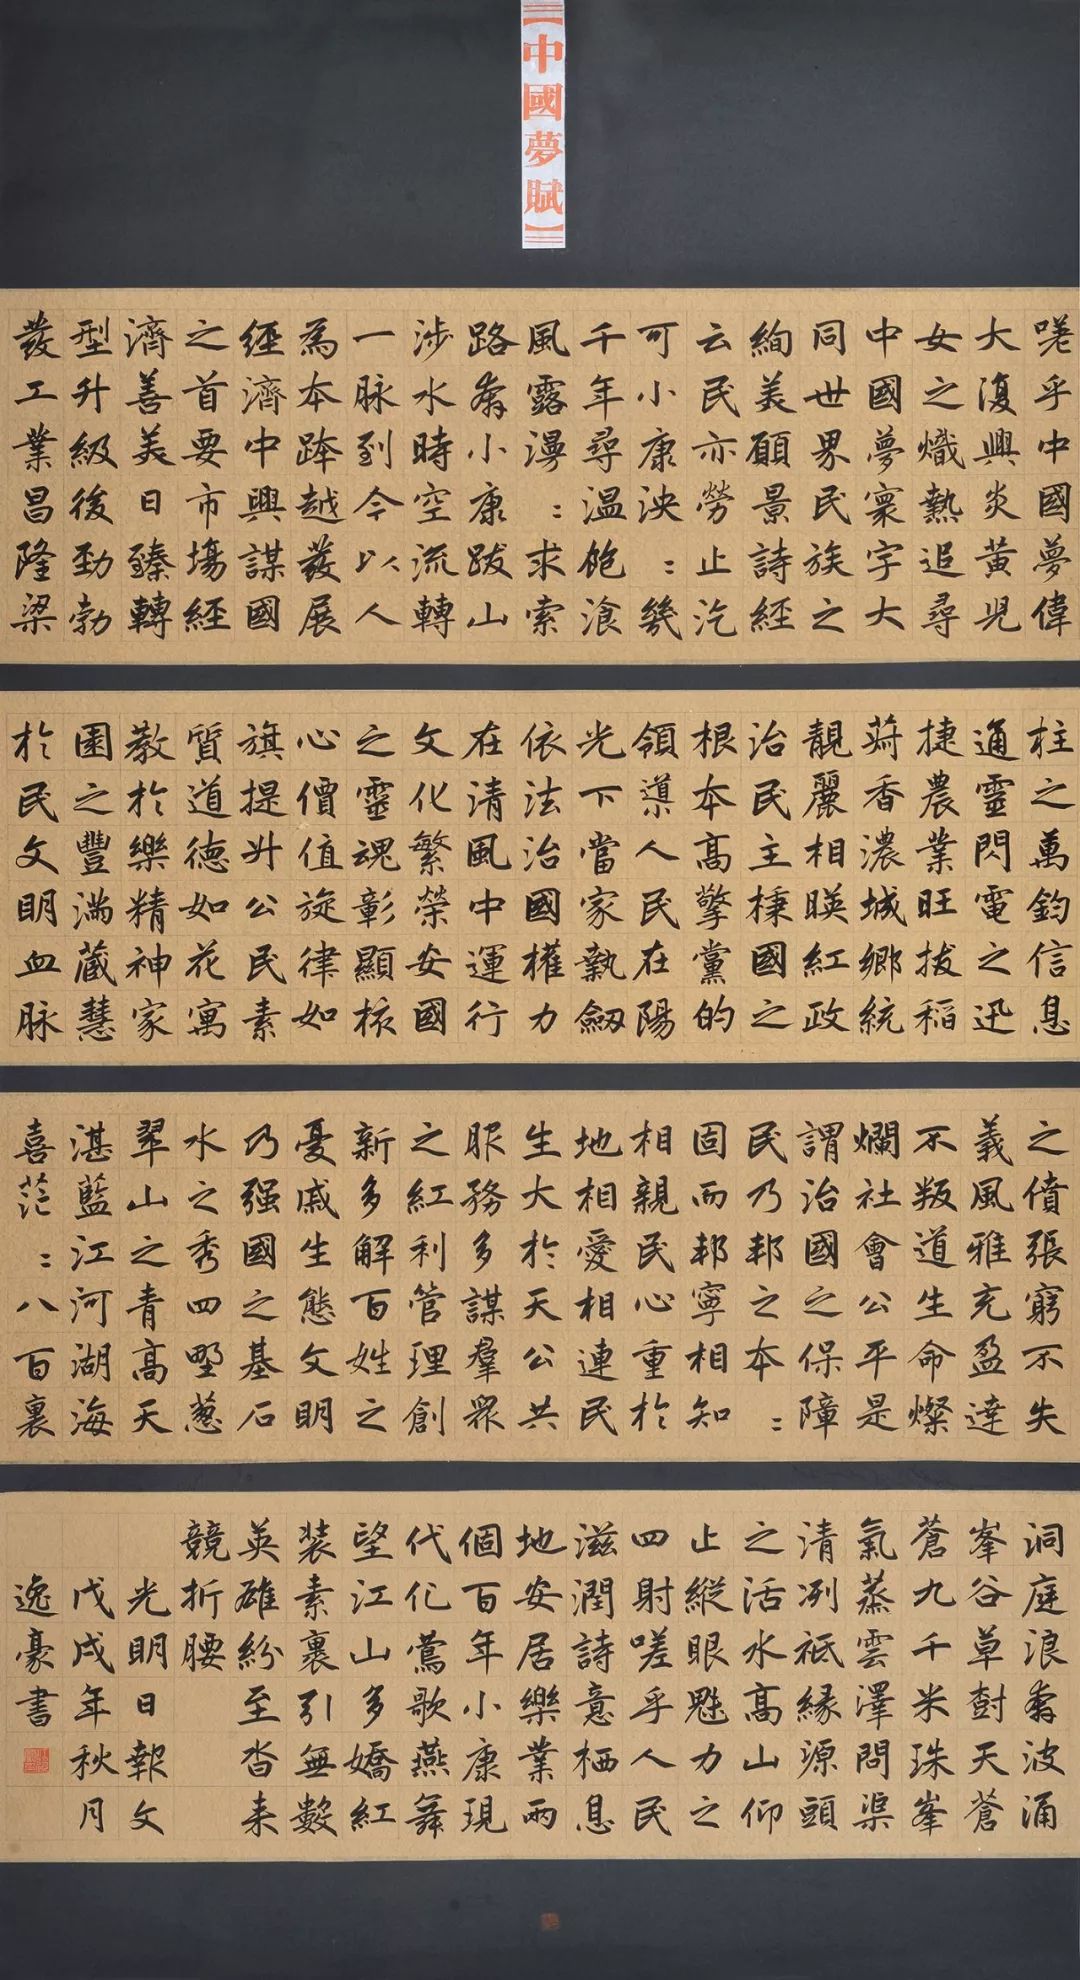 《中國夢賦》
嗟乎中國夢偉
大復興炎黃児
女之熾熱追尋
中國夢寰宇大
同世界民族之
絢美願景詩經
云民亦勞止汔
可小康泱：幾
千年尋溫飽飡
風露漫：求索
路奔小康跋山
涉水時空流轉
一脉到今以人
為本跨越發展
經濟中興謀國
之首要市場經
濟善美日臻轉
型升級後勁勃
發工業昌隆梁
柱之萬鈞信息
通靈閃電之迅
捷農業旺拔稻
蒔香濃城鄉統
靚麗相暎紅政
治民主秉國之
根本高擎黨的
領導人民在陽
光下當家執劔
依法治國權力
在清風中運行
文化繁榮安國
之靈魂彰顯核
心價值旋律如
旗提升公民素
質道德如花寓
教於樂精神家
園之豐滿蔵慧
於民文明血脉
之僨張窮不失
義風雅充盈達
不叛道生命燦
爛社會公平是
謂治國之保障
民乃邦之本：
固而邦寧相知
相親民心重於
地相愛相連民
生大於天公共
服務多謀羣眾
之紅利管理創
新多解百姓之
憂戚生態文明
乃强國之基石
水之秀四野葱
翠山之青高天
湛藍江河湖海
喜茫：八百裏
洞庭浪奔波涌
峯谷草樹天蒼
蒼九千米珠峯
氣蒸雲澤問渠
清冽祗緣源頭
之活水高山仰
止縱眼魅力之
四射嗟乎人民
滋潤詩意栖息
地安居樂業兩
個百年小康現
代化鶯歌燕舞
望江山多嬌紅
装素裹引無數
英雄紛至沓来
競折腰
光明日報文
戊戌年秋月
逸豪書